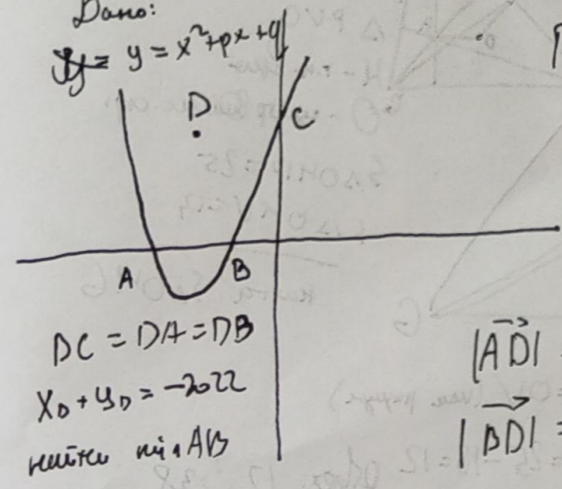 Дано:
y = x²+px+q
D
C
A
B
DC = DA = DB
x_D + y_D = -2022
найти min AB
|AD|
|BD| =